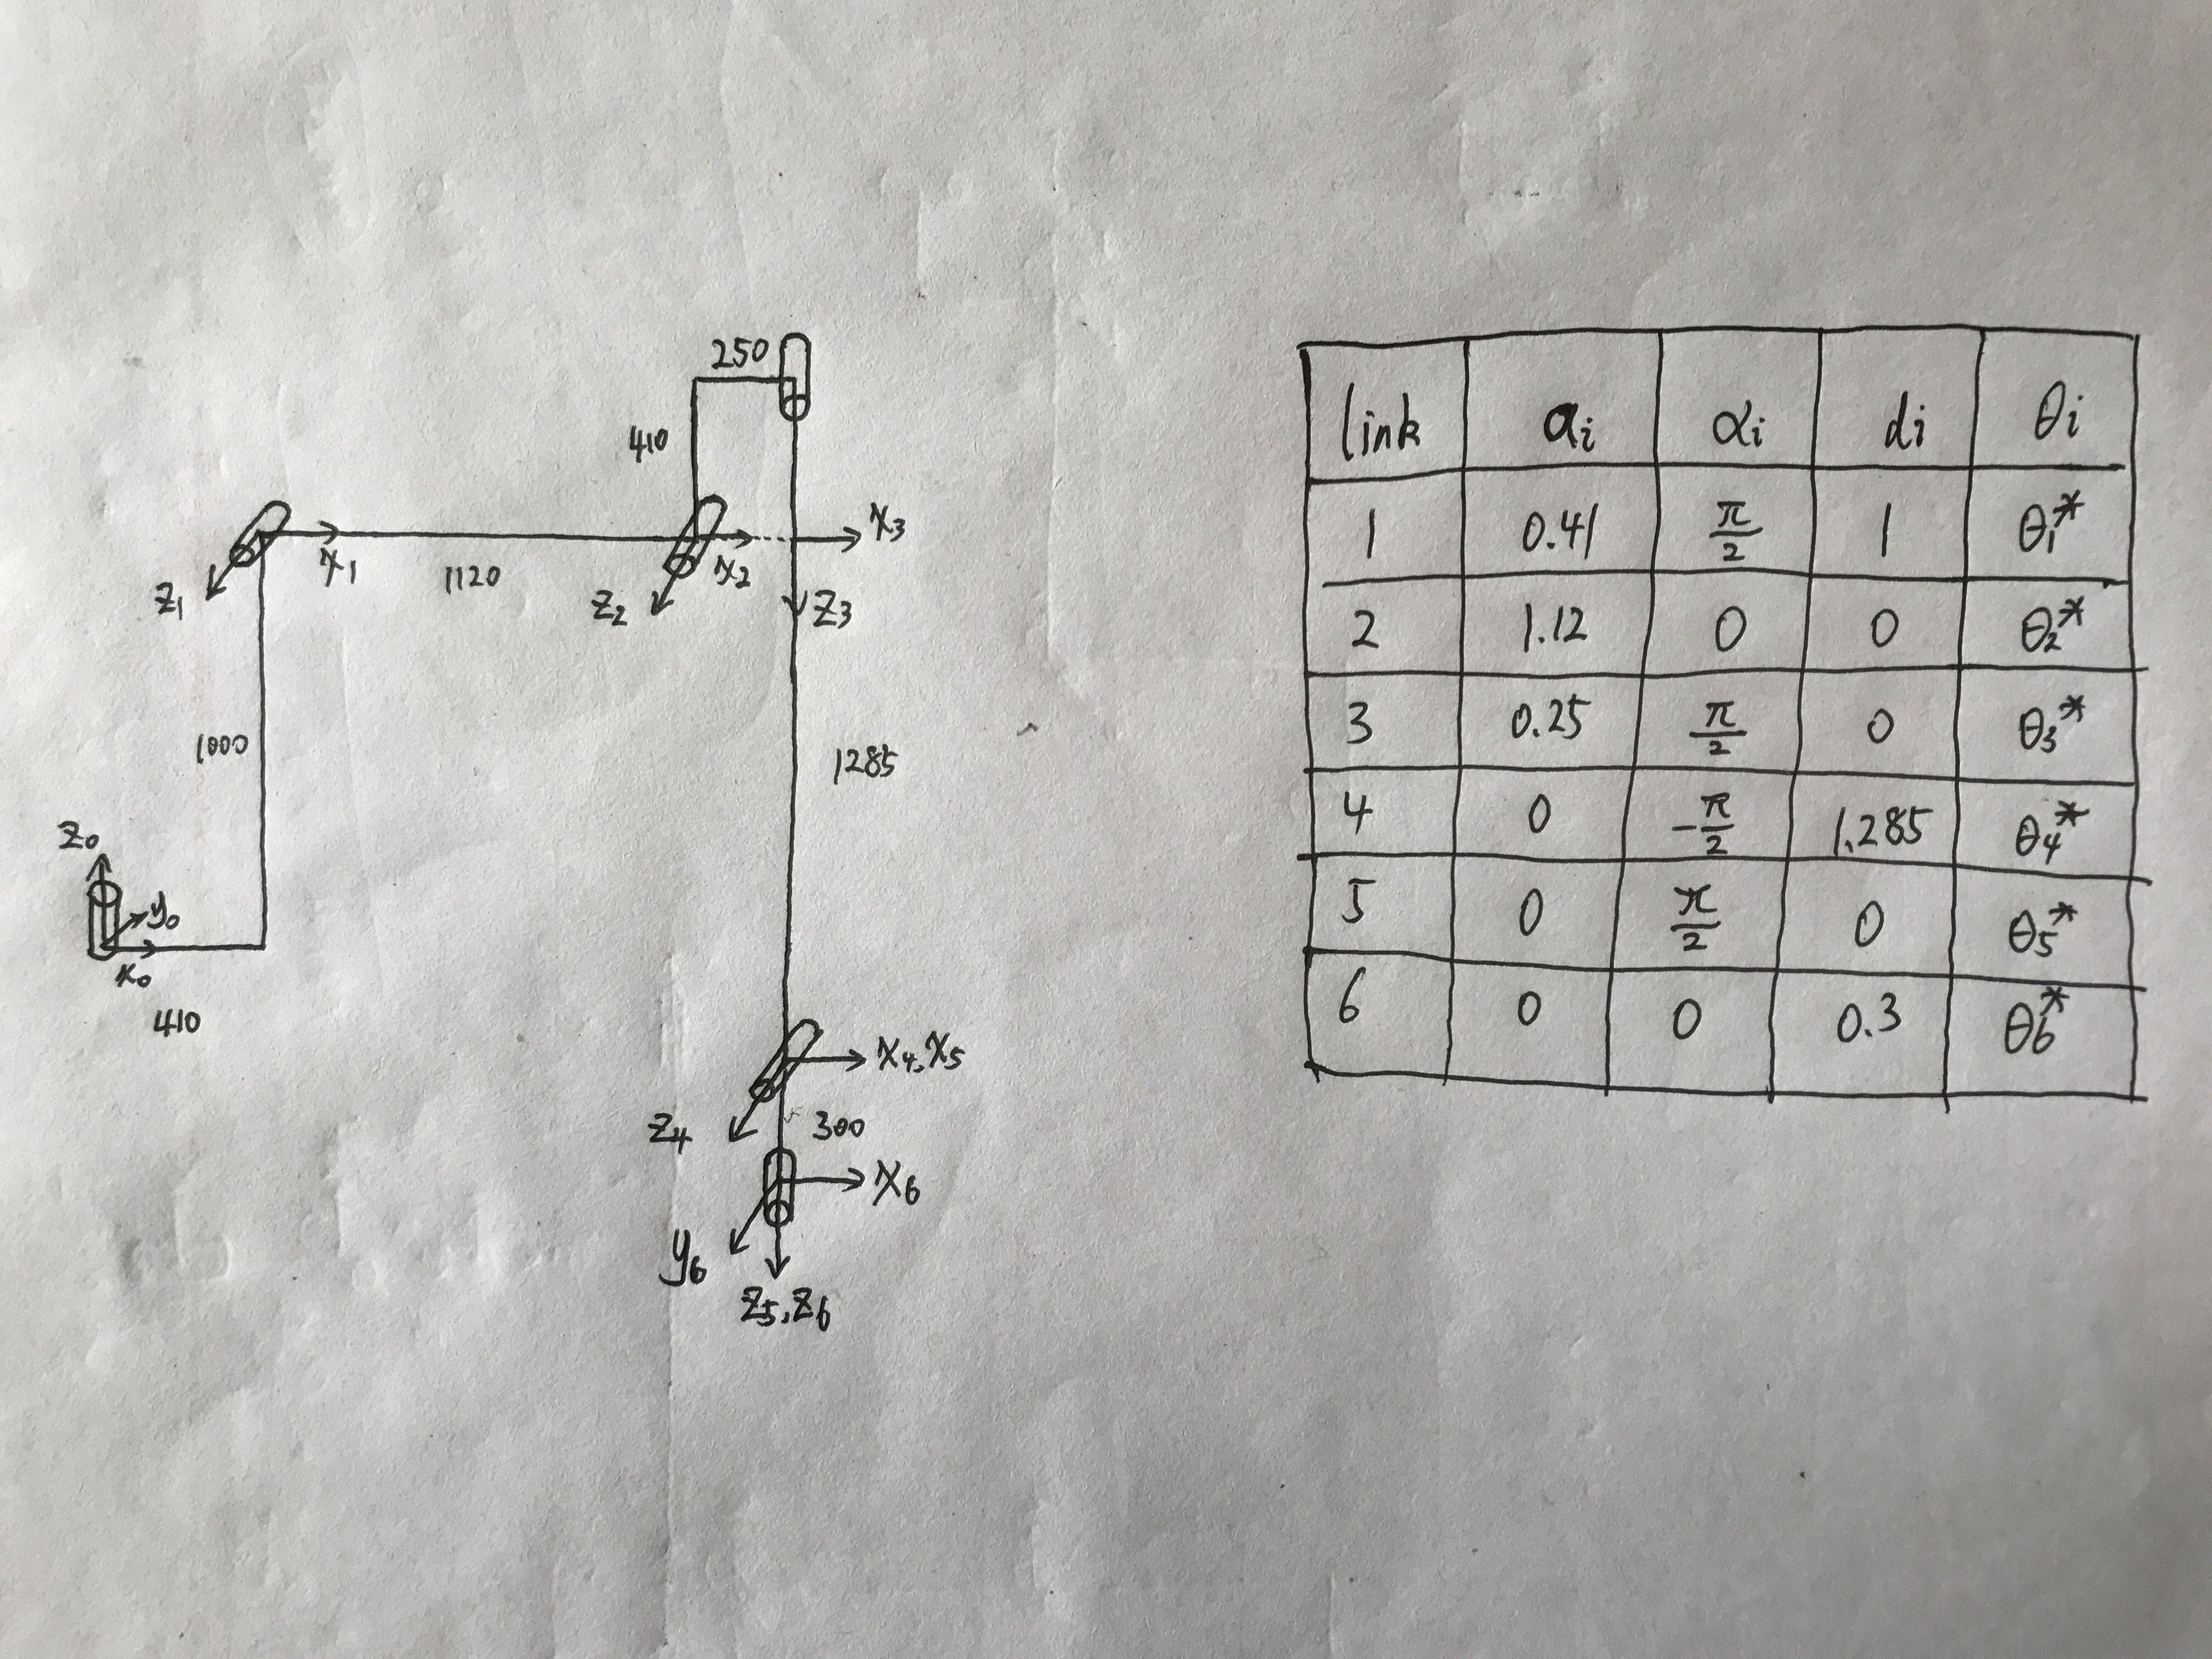 250
410
x₃
x₁
1120
x₂
z₁
z₂
z₃
1000
1285
z₀
y₀
x₀
410
x₄,x₅
z₄
300
x₆
y₆
z₅,z₆
link aᵢ αᵢ dᵢ θᵢ
1 0.41 π/2 1 θ₁*
2 1.12 0 0 θ₂*
3 0.25 π/2 0 θ₃*
4 0 -π/2 1.285 θ₄*
5 0 π/2 0 θ₅*
6 0 0 0.3 θ₆*